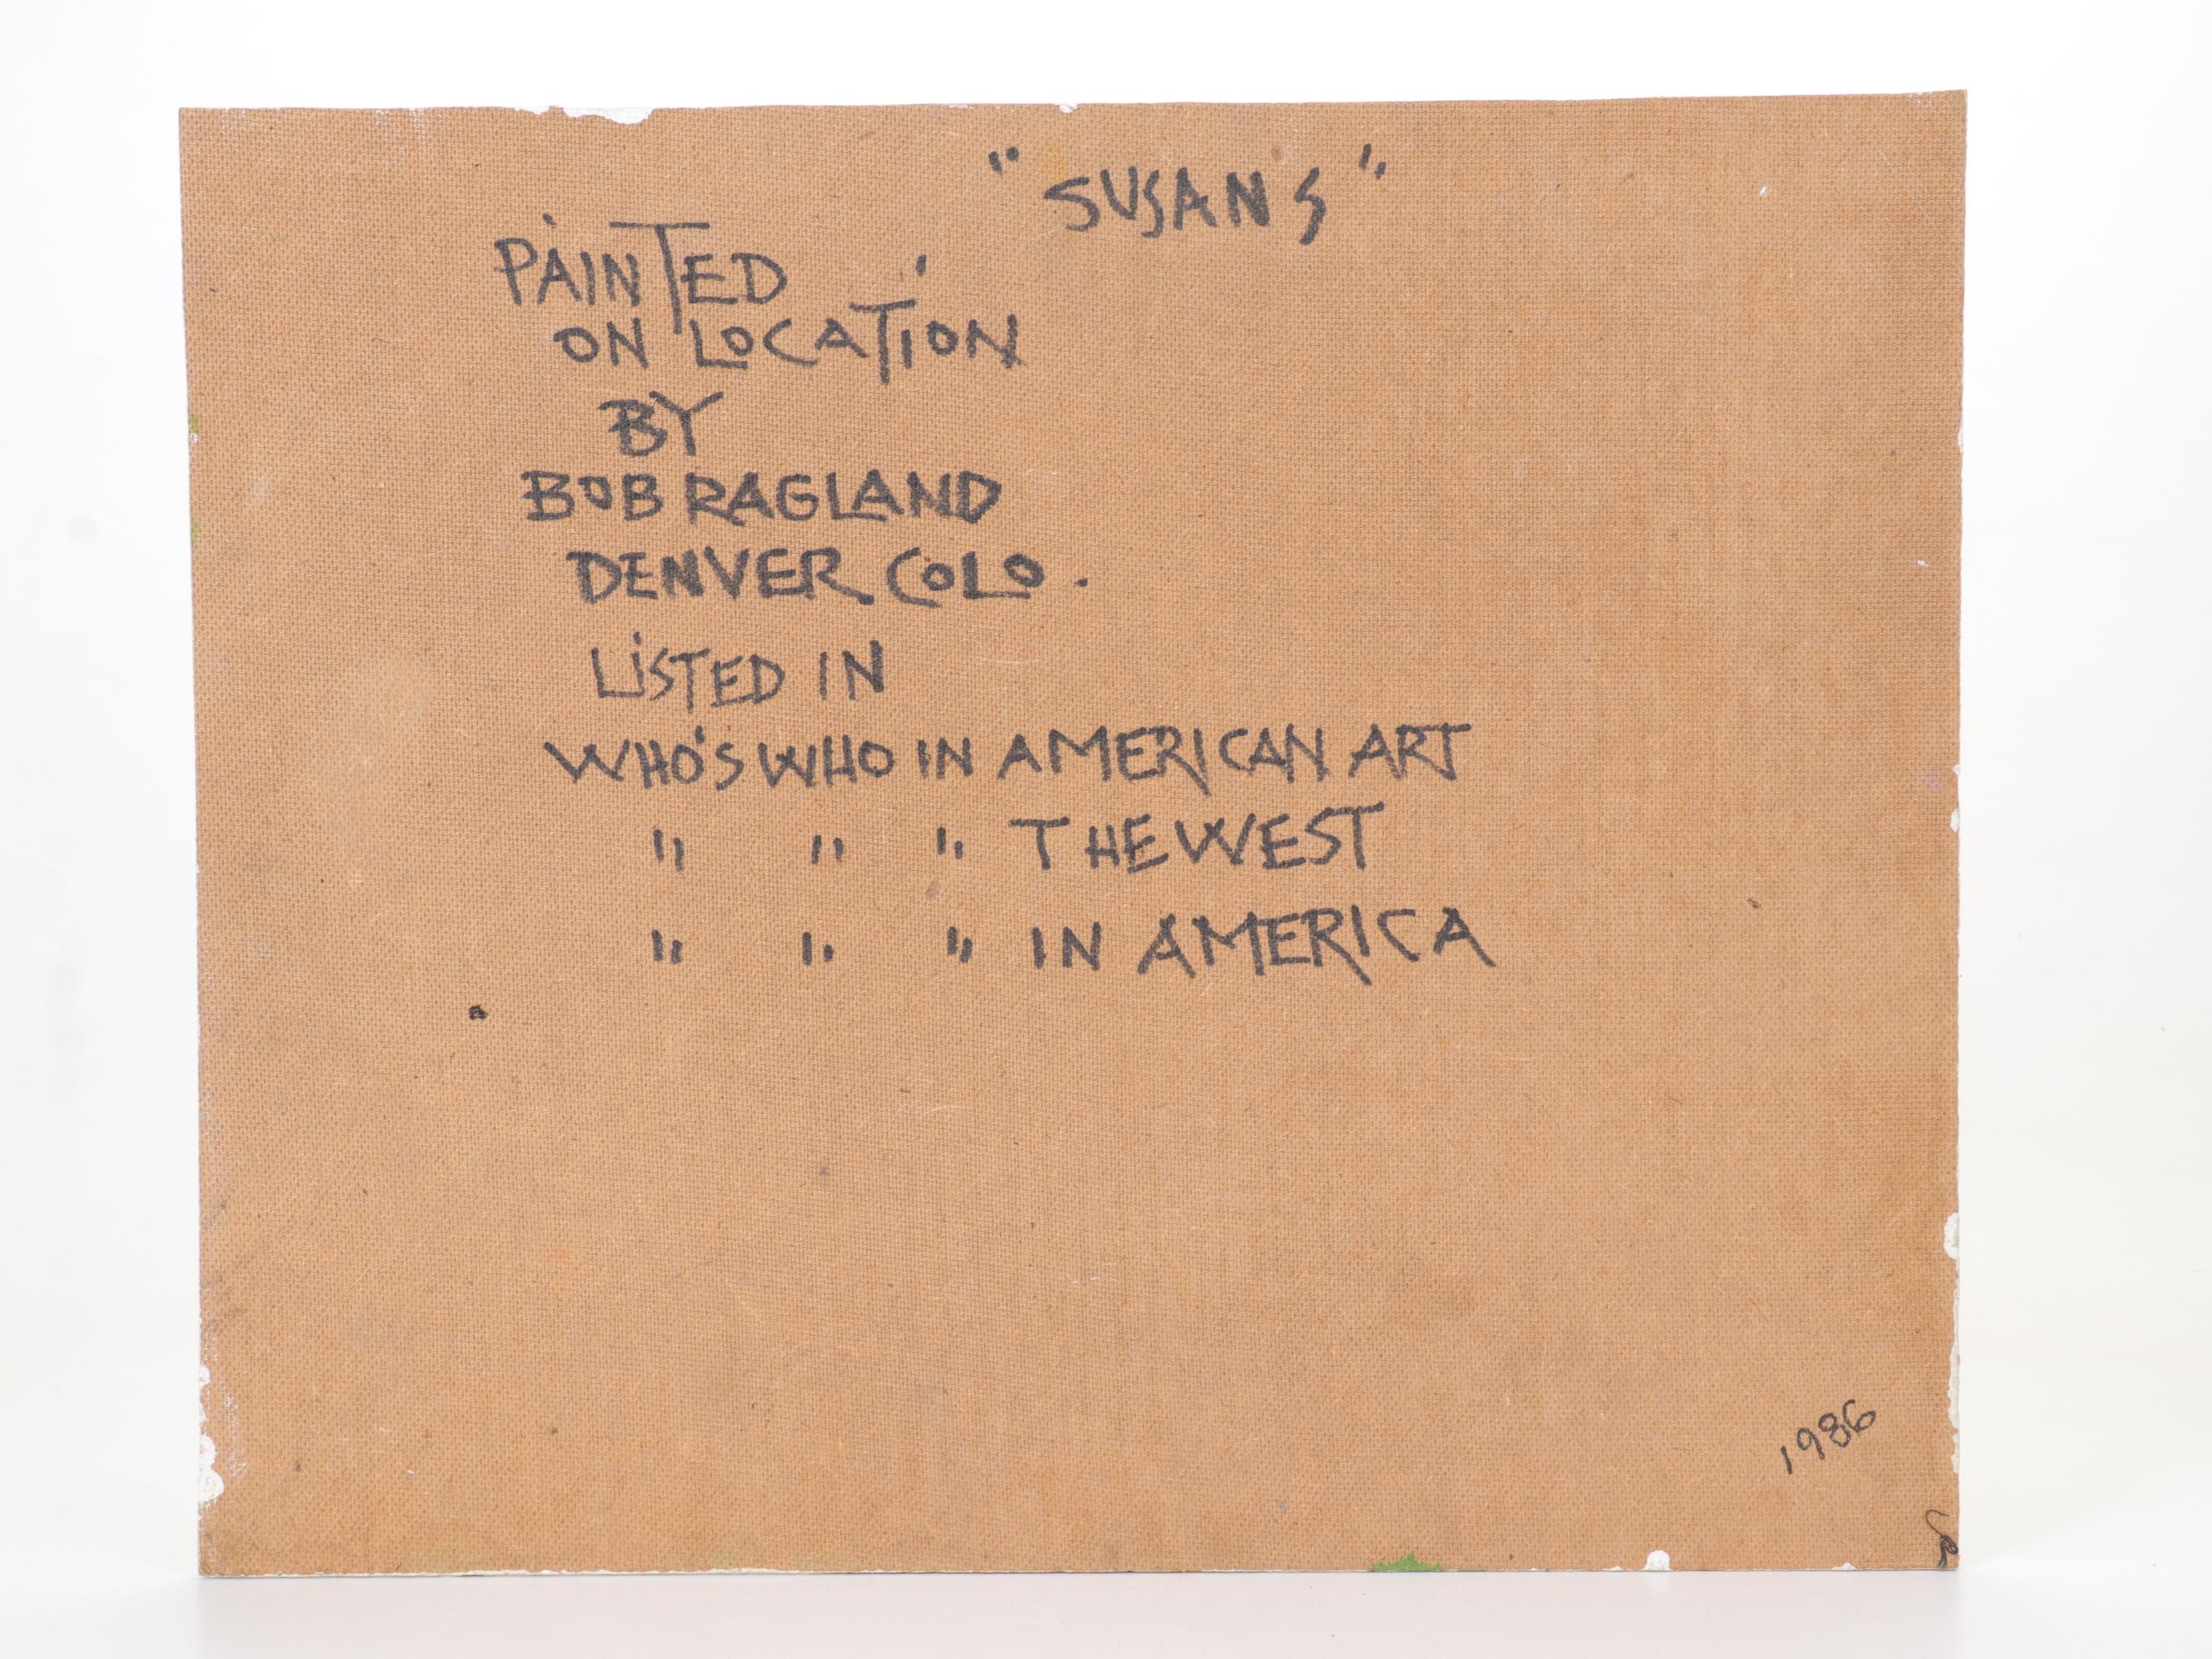 "SUSANS"
PAINTED
ON LOCATION
BY
BOB RAGLAND
DENVER COLO.
LISTED IN
WHO'S WHO IN AMERICAN ART
" " " THE WEST
" " " IN AMERICA
1986